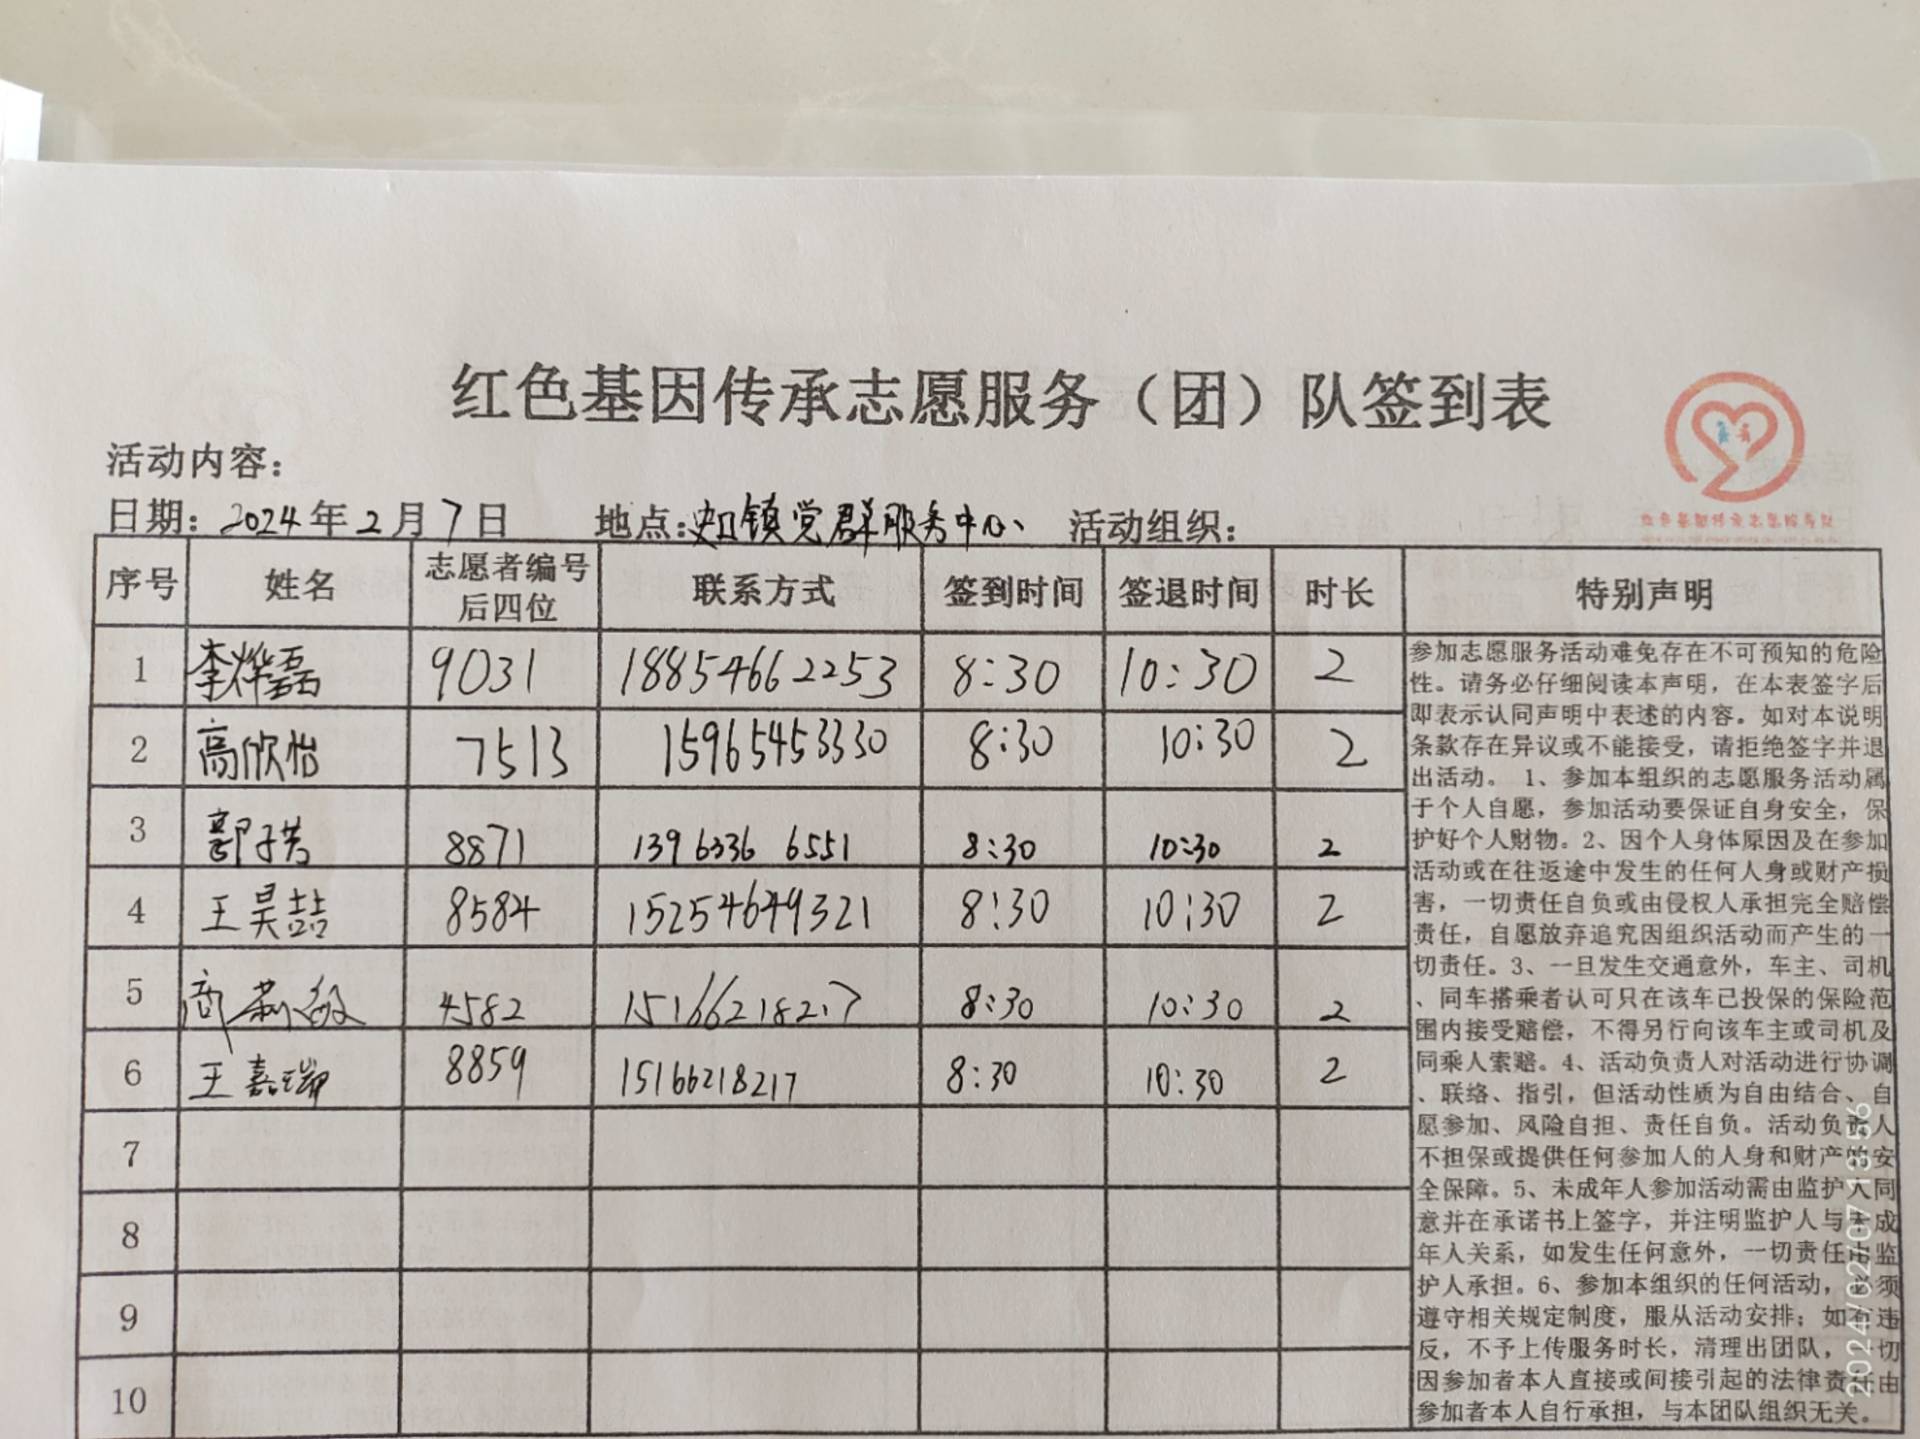 红色基因传承志愿服务（团）队签到表
活动内容：
日期：2024年2月7日 地点：史口镇党群服务中心 活动组织：
序号 姓名 志愿者编号后四位 联系方式 签到时间 签退时间 时长 特别声明
1 李烨磊 9031 18854662253 8:30 10:30 2
2 高欣怡 7513 15965453330 8:30 10:30 2
3 郭子芸 8871 13963366551 8:30 10:30 2
4 王昊喆 8584 15254649321 8:30 10:30 2
5 商 敏 4582 15166218217 8:30 10:30 2
6 王嘉瑞 8859 15166218217 8:30 10:30 2
7
8
9
10
参加志愿服务活动难免存在不可预知的危险
性。请务必仔细阅读本声明，在本表签字后
即表示认同声明中表述的内容。如对本说明
条款存在异议或不能接受，请拒绝签字并退
出活动。 1、参加本组织的志愿服务活动属
于个人自愿，参加活动要保证自身安全，保
护好个人财物。2、因个人身体原因及在参加
活动或在往返途中发生的任何人身或财产损
害，一切责任自负或由侵权人承担完全赔偿
责任，自愿放弃追究因组织活动而产生的一
切责任。3、一旦发生交通意外，车主、司机
、同车搭乘者认可只在该车已投保的保险范
围内接受赔偿，不得另行向该车主或司机及
同乘人索赔。4、活动负责人对活动进行协调
、联络、指引，但活动性质为自由结合、自
愿参加、风险自担、责任自负。活动负责人
不担保或提供任何参加人的人身和财产的安
全保障。5、未成年人参加活动需由监护人同
意并在承诺书上签字，并注明监护人与未成
年人关系，如发生任何意外，一切责任由监
护人承担。6、参加本组织的任何活动，必须
遵守相关规定制度，服从活动安排；如有违
反，不予上传服务时长，清理出团队，一切
因参加者本人直接或间接引起的法律责任由
参加者本人自行承担，与本团队组织无关。
2024/02/07 13:56